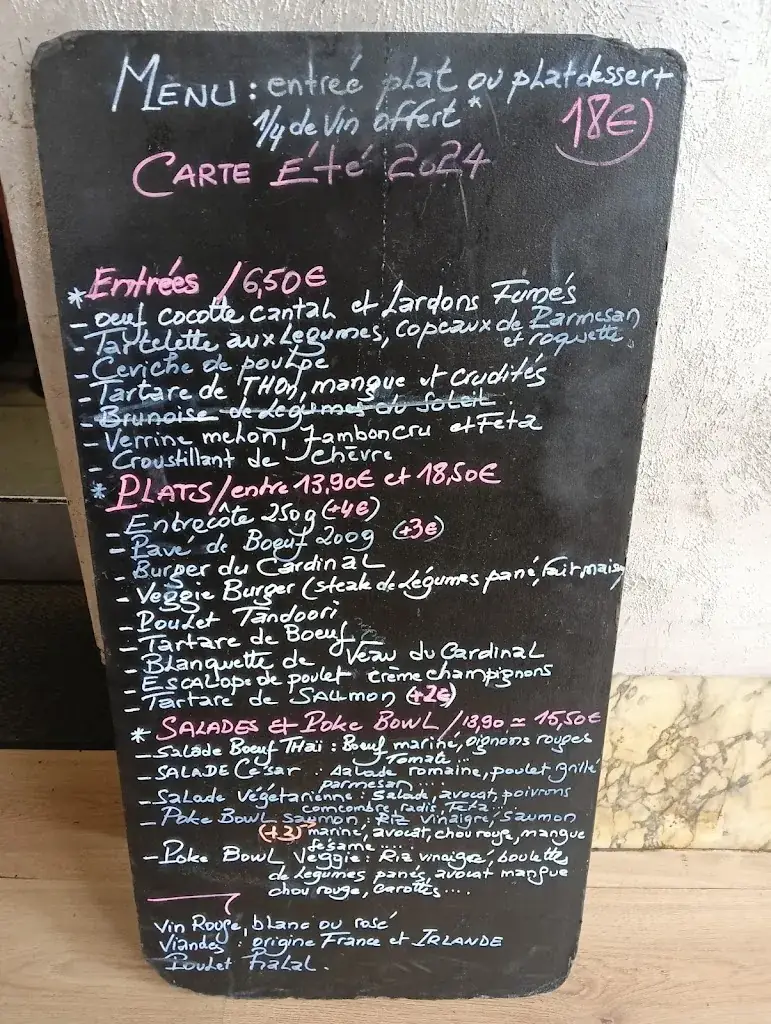 MENU : entreé plat ou plat dessert
1/4 de vin offert *
18€
CARTE Été 2024
* Entrées / 6,50€
- oeuf cocotte cantal et Lardons Fumés
- Tartelette aux Légumes, copeaux de Parmesan
et roquette.
- Ceviche de poulpe
- Tartare de THON, mangue et crudités
- Brunoise de Légumes du Soleil.
- Verrine melon, Jambon cru et Feta
- Croustillant de chèvre
* PLATS / entre 13,90€ et 18,50€
- Entrecôte 250g (+4€)
- Pavé de Boeuf 200g (+3€)
- Burger du Cardinal
- Veggie Burger (steak de Légumes pané, Fait maison)
- Poulet Tandoori
- Tartare de Boeuf
- Blanquette de Veau du Cardinal
- Escalope de poulet crème champignons
- Tartare de SAUmon (+2€)
* SALADES Et Poke Bowl / 13,90 ≃ 15,50€
- Salade Boeuf THaï : Boeuf mariné, oignons rouges
Tomate...
- SALADE César : salade romaine, poulet grillé
parmesan....
- Salade Végétarienne : Salade, avocat, poivrons
comcombre, radis, Feta...
- Poke Bowl saumon : Riz vinaigré, saumon
(+3) mariné, avocat, chou rouge, mangue
sésame....
- Poke Bowl Veggie : Riz vinaigré, boulettes
de légumes panés, avocat mangue
chou rouge, carottes....
Vin Rouge, blanc ou rosé
Viandes : origine France et IRLANDE
Poulet Halal.